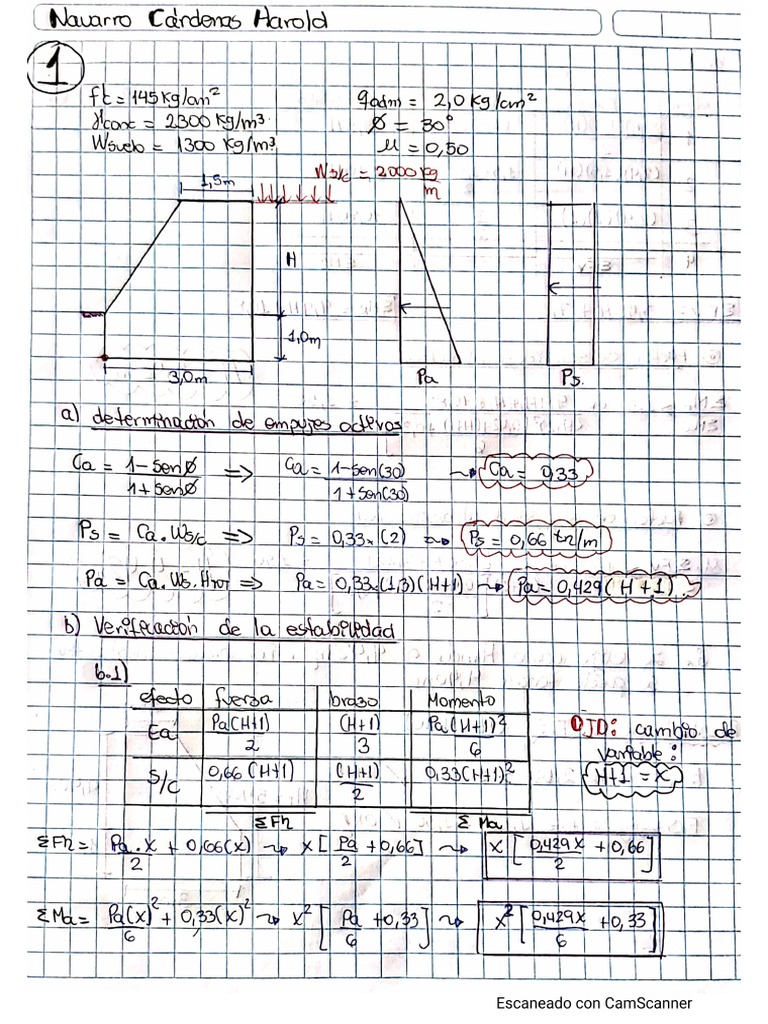 Navarro Cárdenas Harold
1
ft = 145 Kg/cm²
γconc = 2300 Kg/m³
Wsuelo = 1300 Kg/m³
qadm = 2,0 Kg/cm²
Ø = 30°
μ = 0,50
Ws/c = 2000 Kg/m
1,5m
H
1,0m
3,0m
Pa
Ps.
a) determinación de empujes activos
Ca = 1-senØ / 1+senØ => Ca = 1-sen(30) / 1+sen(30) ~> Ca = 0,33
Ps = Ca.Ws/c => Ps = 0,33x(2) ~> Ps = 0,66 tn/m
Pa = Ca.Ws.HTOT => Pa = 0,33x(1,3)(H+1) ~> Pa = 0,429(H+1).
b) Verificación de la estabilidad
b.1)
efecto fuerza brazo Momento
Ea Pa(H+1)/2 (H+1)/3 Pa(H+1)²/6
S/c 0,66(H+1) (H+1)/2 0,33(H+1)²
ΣFh ΣMa
OJO: cambio de
variable:
H+1 = x
ΣFh = Pa.x/2 + 0,66(x) ~> x[Pa/2 + 0,66] ~> x[0,429x/2 + 0,66]
ΣMa = Pa(x)²/6 + 0,33(x)² ~> x²[Pa/6 + 0,33] ~> x²[0,429x/6 + 0,33]
Escaneado con CamScanner